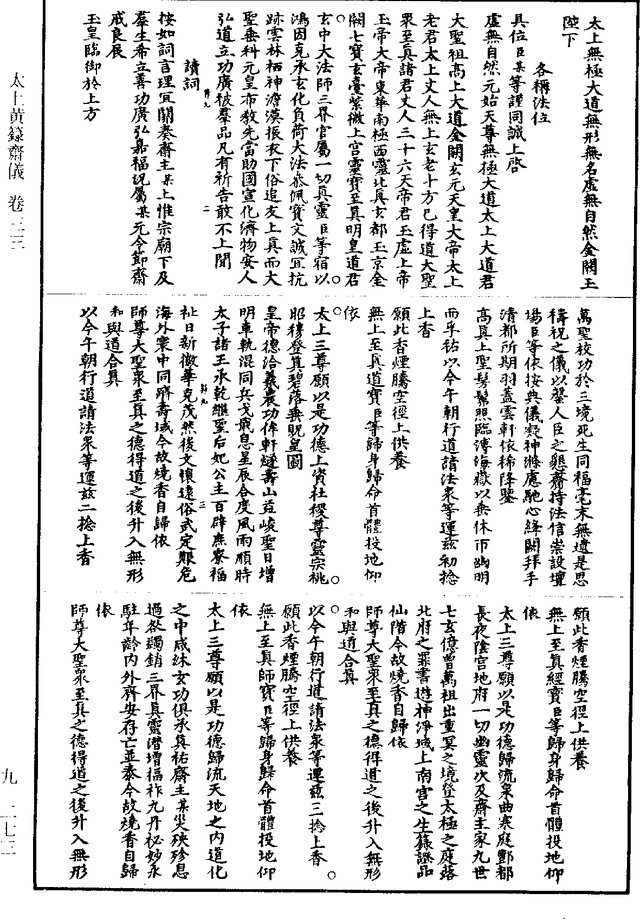 太上無極大道無形無名虛無自然金闕玉
陛下
各稱法位
具位臣某等謹同誠上啓
虛無自然元始天尊無極大道太上大道君
大聖祖高上大道金闕玄元天皇大帝太上
老君太上丈人無上玄老十方已得道大聖
衆至真諸君丈人三十六天帝君玉虛上帝
玉帝大帝東華南極西靈北真玄都玉京金
闕七寶玄臺紫微上宮靈寶至真明皇道君
玄中大法師三界官屬一切真靈臣等宿以
鴻因克承玄化負荷大法恭佩寶文誠宜抗
跡雲林栖神澹漠振衣下俗追友上真而大
聖垂科元皇布教先當助國宣化濟物安人
弘道立功廣被羣品凡有祈告敢不上聞
讀詞
按如詞言理宜關奏齋主某上惟宗廟下及
羣生希立善功廣弘嘉福況屬某元令節齋
戒良辰
玉皇臨御於上方
萬聖校功於三境死生同福毫末無遺是思
禱祝之儀以罄人臣之懇齋持法信崇設壇
場臣等依按典儀凝神滌慮馳心絳闕拜手
清都所期羽蓋雲軒依稀降鑒
高真上聖髣髴照臨溥海嶽以垂休帀幽明
而孚祐以今午朝行道請法衆等運茲初捻
上香
願此香煙騰空徑上供養
無上至真道寶臣等歸身歸命首體投地仰
依
太上三尊願以是功德上資社稷尊靈宗祧
昭穆登真碧落垂貺皇圖
皇帝德洽羲農功侔軒燧壽山益峻聖日增
明車軌混同兵戈戢息星辰合度風雨順時
太子諸王承乾繼聖后妃公主百辟庶寮福
祉日新徽華克茂然後文懷遠俗武定艱危
海外寰中同躋壽域今故燒香自歸依
師尊大聖衆至真之德得道之後升入無形
和與道合真
以今午朝行道請法衆等運茲二捻上香
願此香煙騰空徑上供養
無上至真經寶臣等歸身歸命首體投地仰
依
太上三尊願以是功德歸流泉曲寒庭酆都
長夜陰宮地府一切幽靈次及齋主家九世
七玄億曾萬祖出重冥之境登太極之庭落
北府之罪書遊神淨域上南宮之生籙證品
仙階今故燒香自歸依
師尊大聖衆至真之德得道之後升入無形
和與道合真
以今午朝行道請法衆等運茲三捻上香
願此香煙騰空徑上供養
無上至真師寶臣等歸身歸命首體投地仰
依
太上三尊願以是功德歸流天地之内道化
之中咸沐玄功俱承真祐齋主某災殃殄息
過咎蠲銷三界真靈潛增福祚九丹祕妙永
駐年齡内外齊安存亡並泰今故燒香自歸
依
師尊大聖衆至真之德得道之後升入無形
太上黃籙齋儀 卷三三
九 二七三